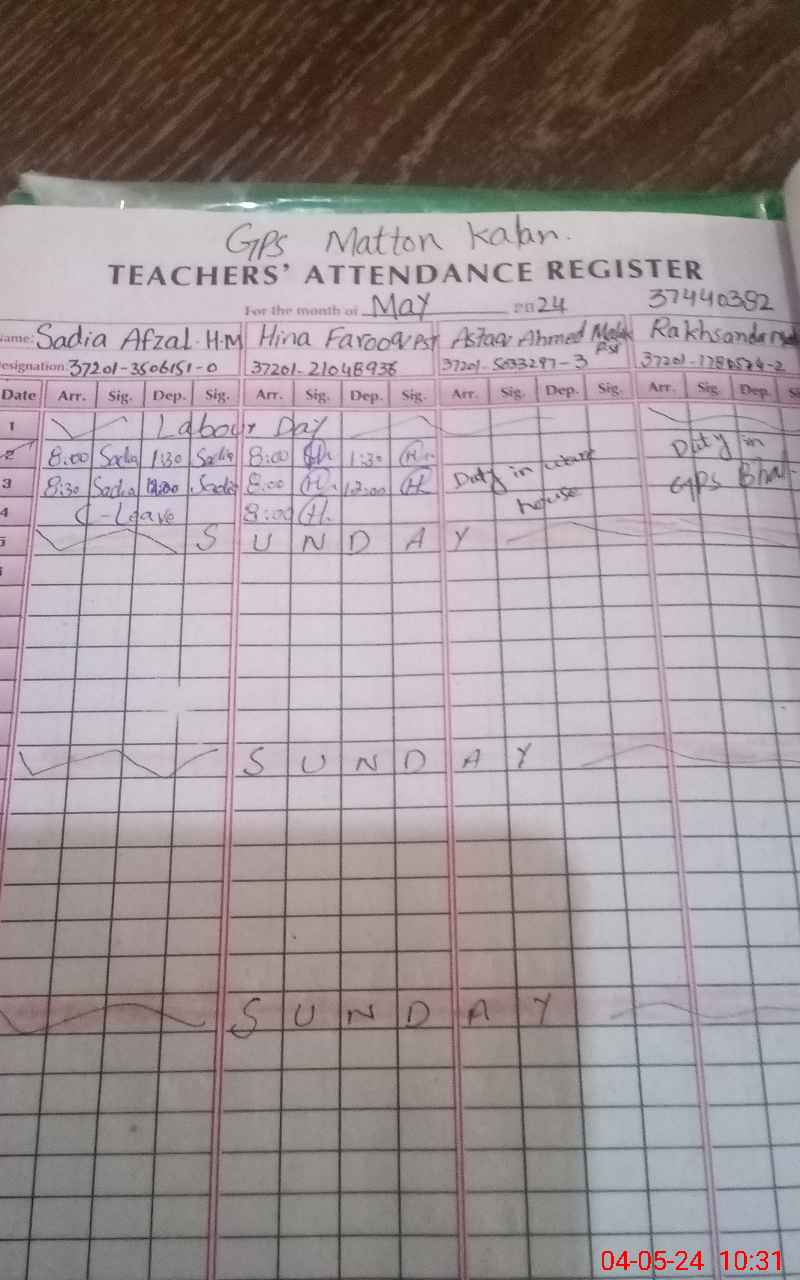 GPS Matton Kalan.
TEACHERS' ATTENDANCE REGISTER
For the month of MAY 20 24 37440392
Name: Sadia Afzal. H.M Hina Farooq PST Ahmed Malik PST Rakhsanda
Designation: 37201-3506151-0 37201-21048936 37201-5033297-3
Date Arr. Sig. Dep. Sig. Arr. Sig. Dep. Sig. Arr. Sig. Dep. Sig. Arr. Sig. Dep.
1 Labour Day
2 8:00 Sadia 1:30 Sadia 8:00 H. 1:30 H. Duty in
3 8:30 Sadia 12:00 Sadia 8:00 H. 12:00 H. Duty in house GPS
4 C-Leave 8:00 H.
5 S U N D A Y
S U N D A Y
S U N D A Y
04-05-24 10:31